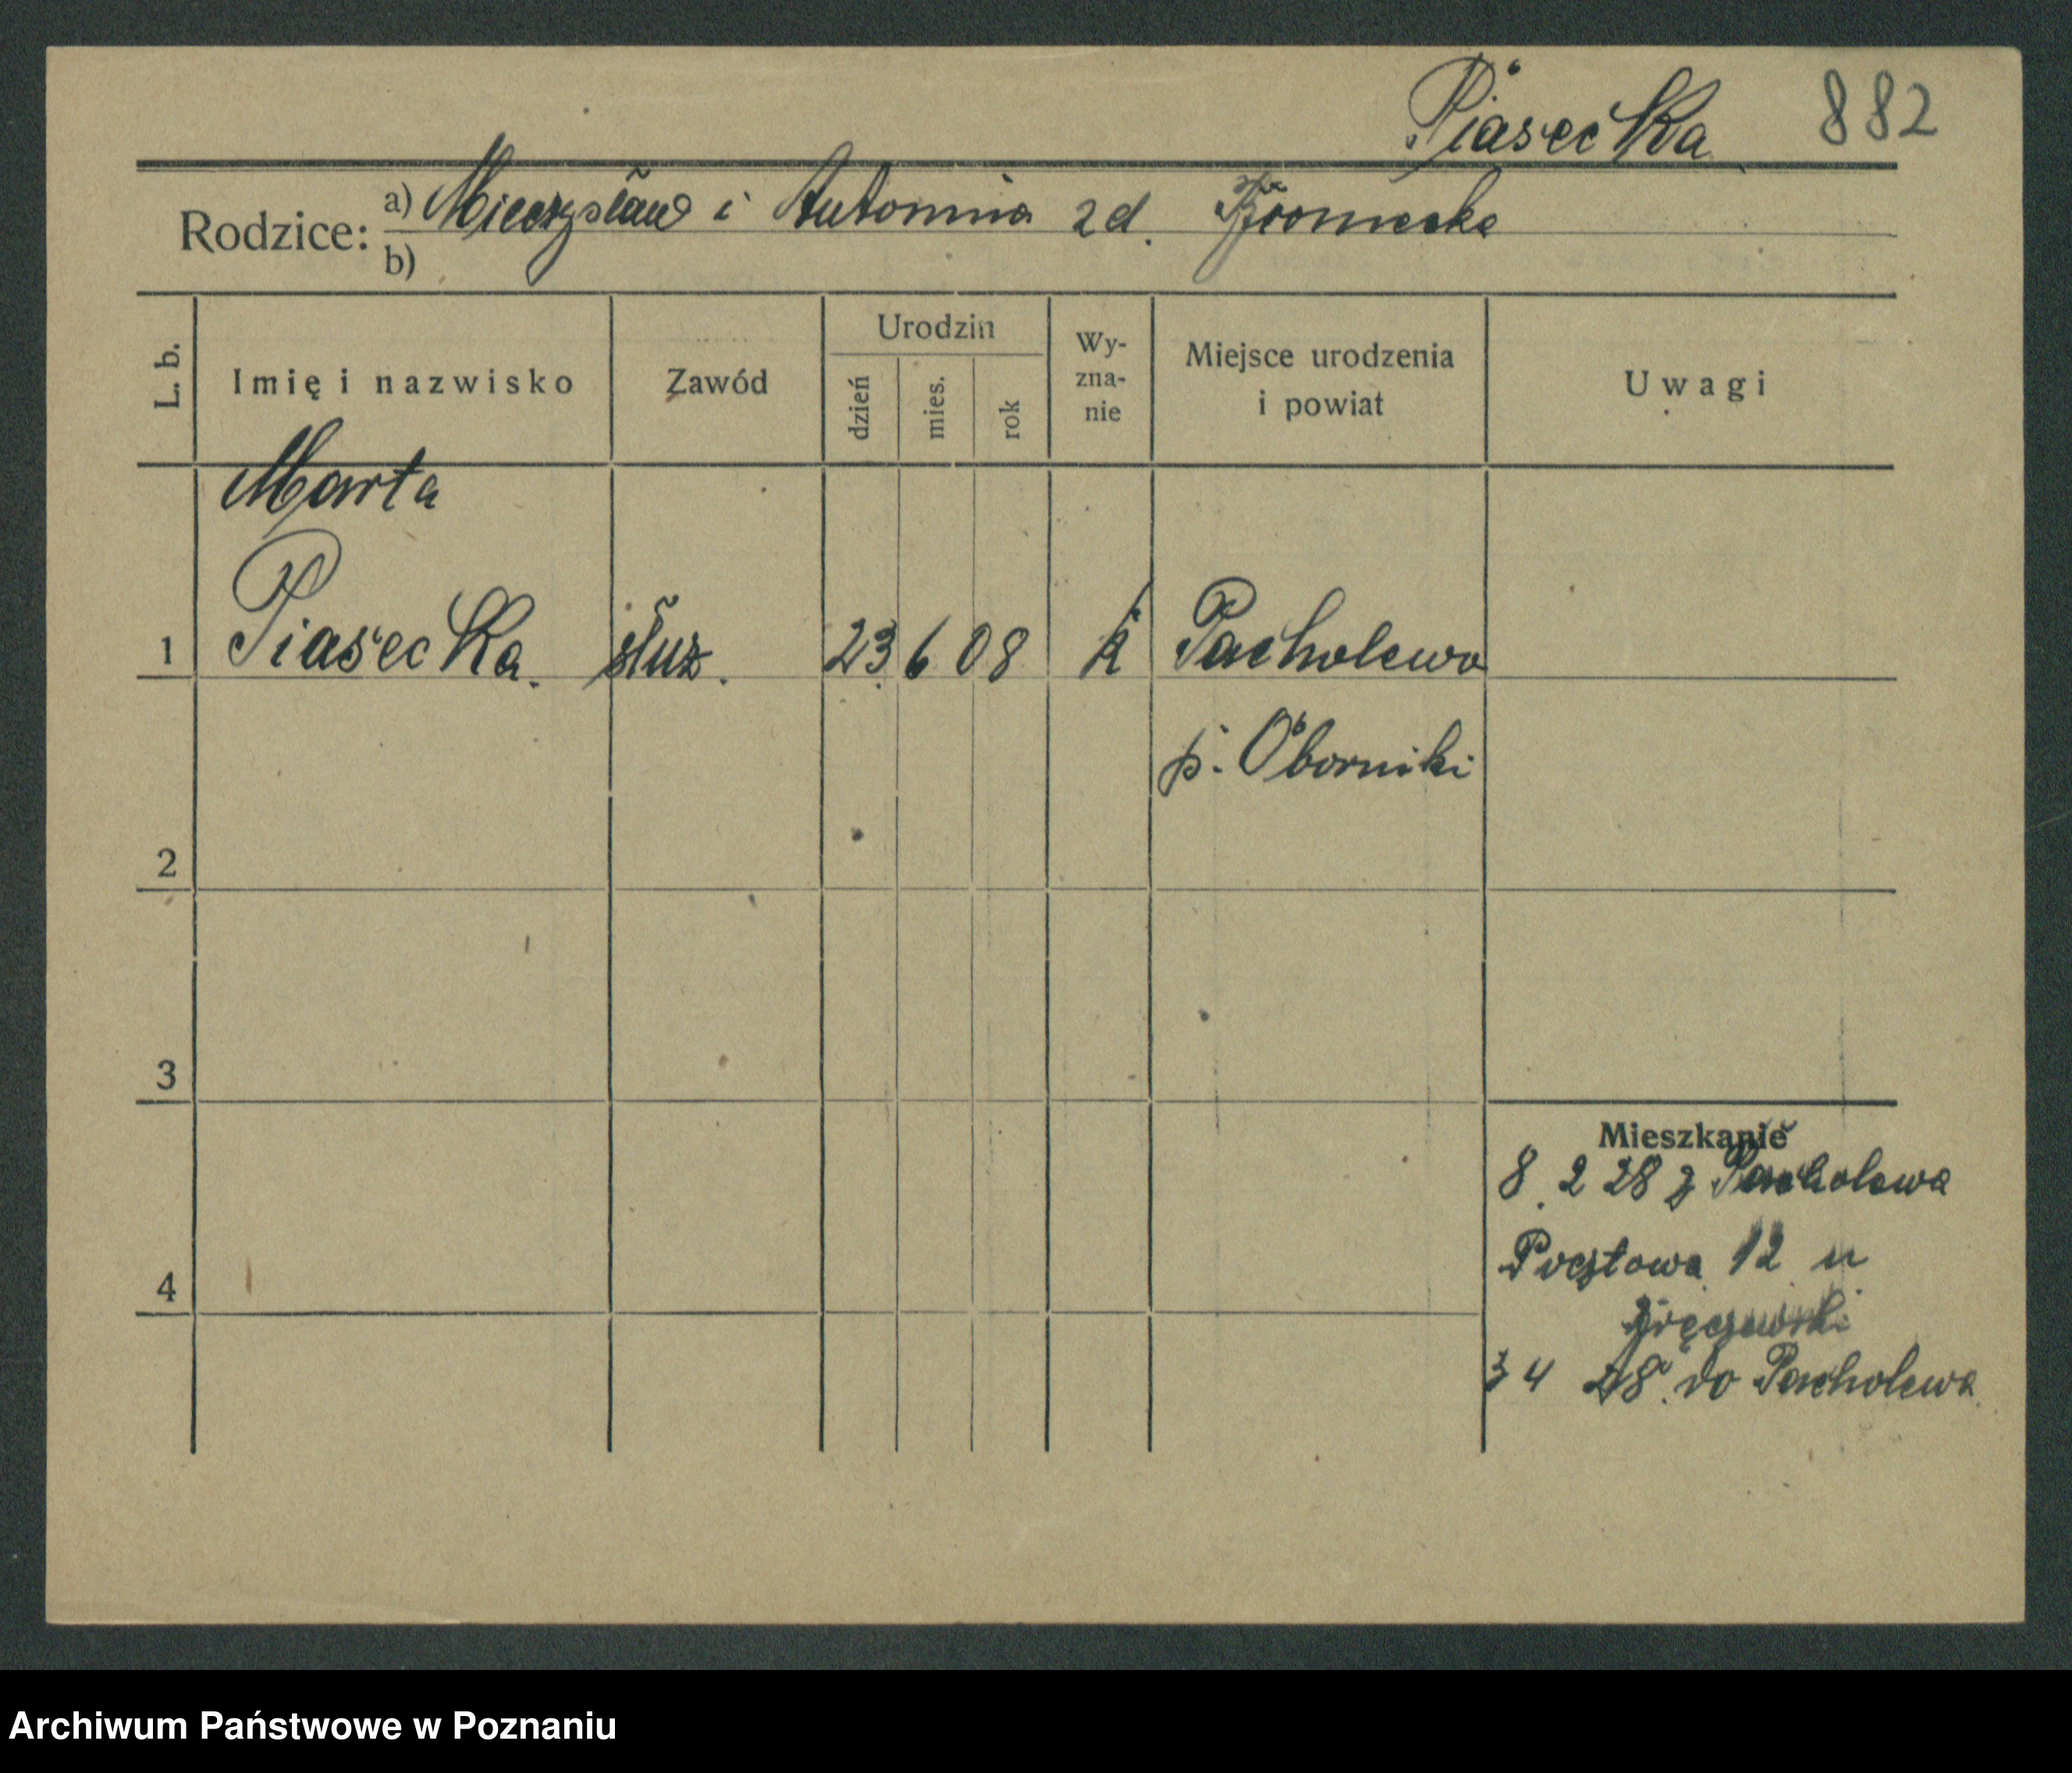 Piasecka 882
Rodzice: a) Mieczysław i Antonina zd.
b)
L. b. Imię i nazwisko Zawód Urodzin dzień mies. rok Wy-zna-nie Miejsce urodzenia i powiat Uwagi
Marta
1 Piasecka. służ. 23 6 08 k Pacholewo
p. Oborniki
2
3
Mieszkanie
8. 2 28 z Pacholewa
Pocztowa 12 u
4
3 4 28. do Pacholewa
Archiwum Państwowe w Poznaniu